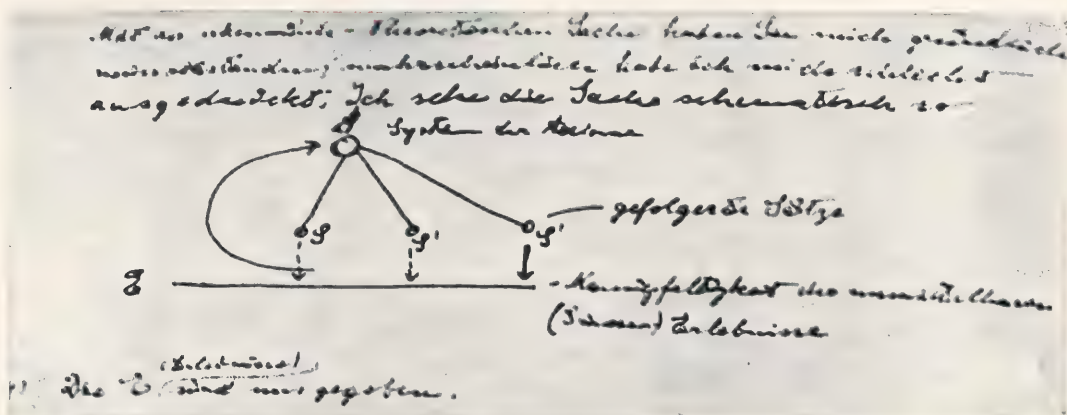 Mit der erkenntnis-theoretischen Sache haben Sie mich gründlich
missverständlich; wahrscheinlich habe ich mich schlecht
ausgedrückt. Ich sehe die Sache schematisch so
A
System der Axiome
S S' S'
gefolgerte Sätze
E
Mannigfaltigkeit der unmittelbaren
(Sinnes) Erlebnisse
(Erlebnisse)
1) Die E sind uns gegeben.